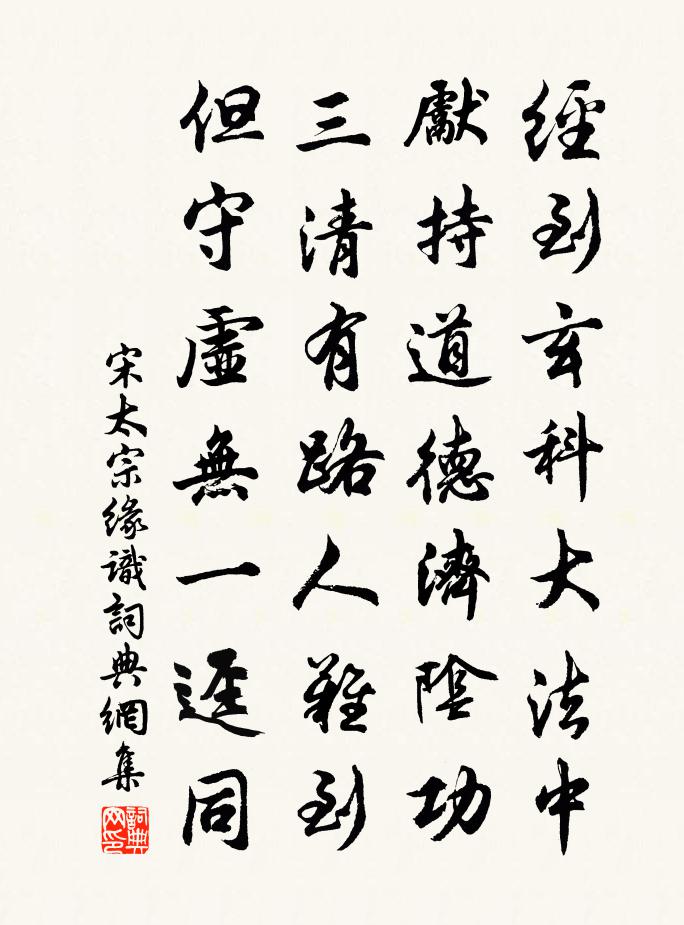 經到玄科大法中
獻持道德濟陰功
三清有路人難到
但守虛無一逕同
宋太宗緣識詞典網集
詞典网印